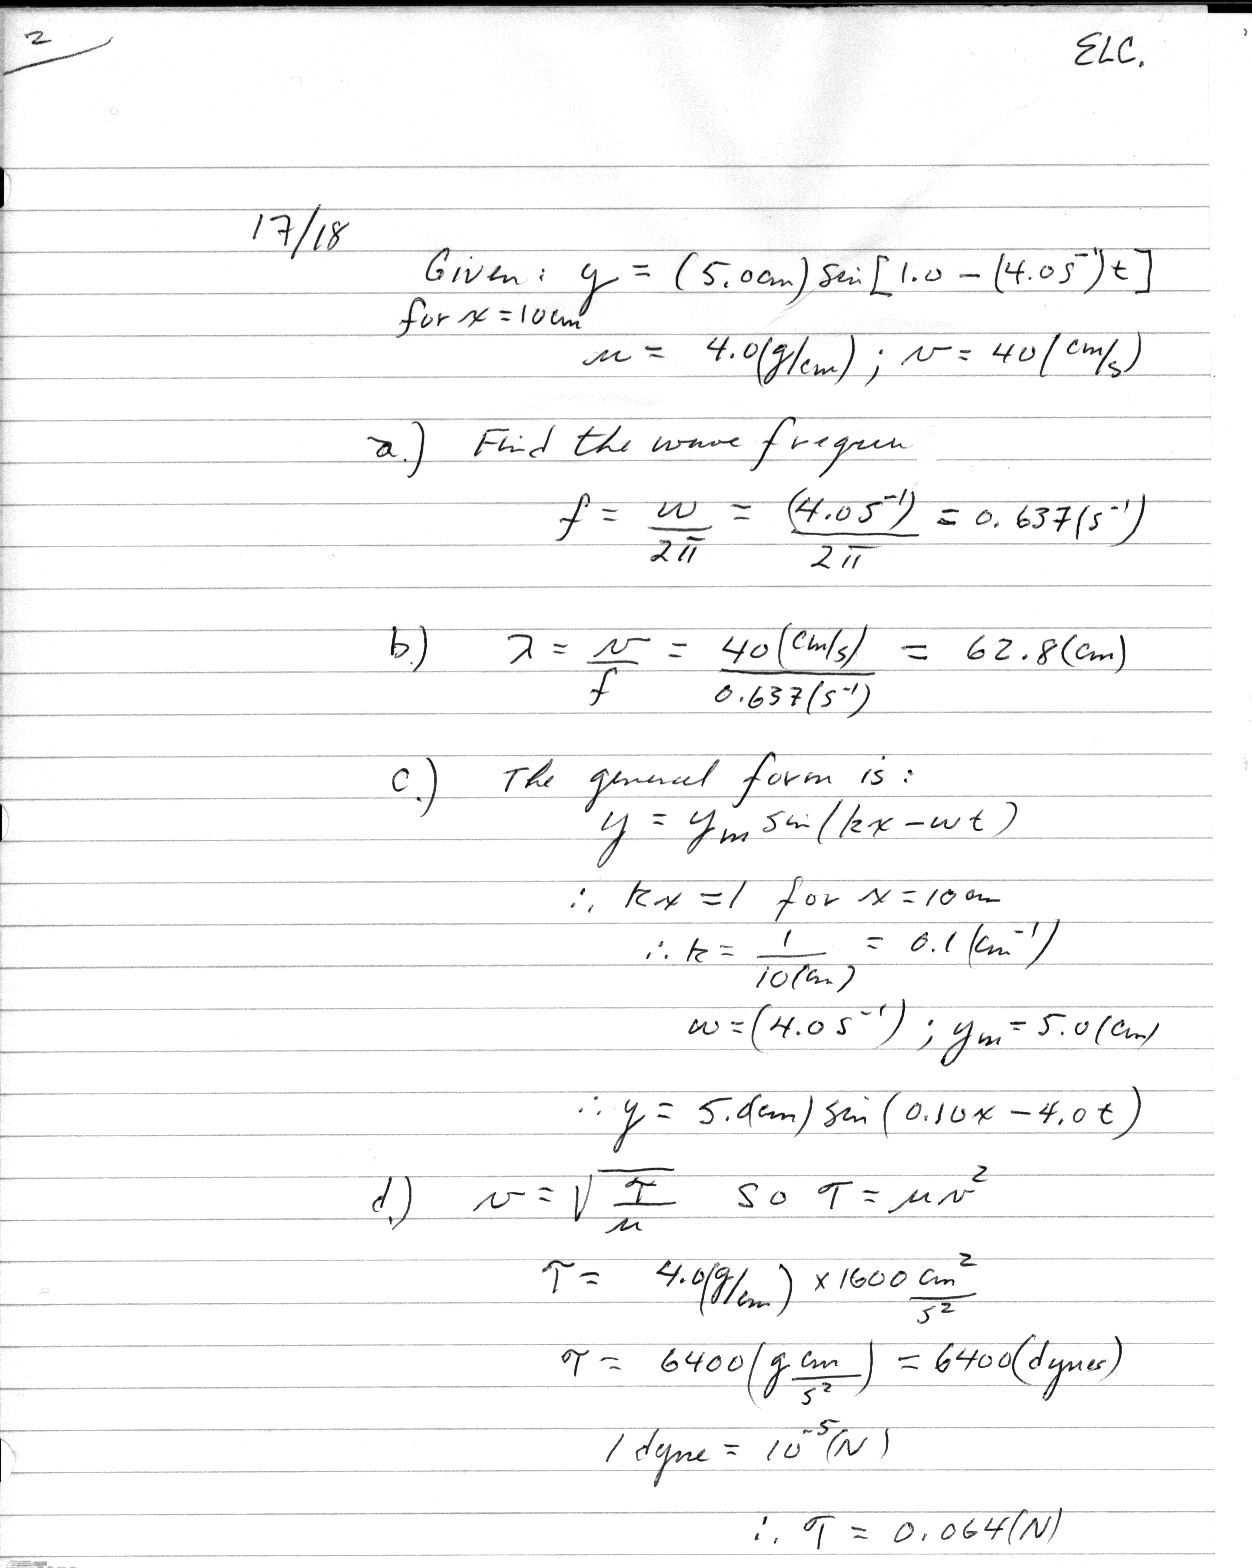 2
ELC.
17/18
Given: y = (5.0cm) sin [1.0 - (4.0s⁻¹)t]
for x = 10cm
μ = 4.0(g/cm) ; v = 40(cm/s)
a.) Find the wave frequen
f = w/2π = (4.0s⁻¹)/2π = 0.637(s⁻¹)
b.) λ = v/f = 40(cm/s)/0.637(s⁻¹) = 62.8(cm)
c.) The general form is:
y = yₘ sin(kx - wt)
∴ kx = 1 for x = 10cm
∴ k = 1/10(cm) = 0.1(cm⁻¹)
w = (4.0s⁻¹) ; yₘ = 5.0(cm)
∴ y = 5.0(cm) sin(0.10x - 4.0t)
d.) v = √(τ/μ) so τ = μv²
τ = 4.0(g/cm) × 1600 cm²/s²
τ = 6400(g cm/s²) = 6400(dynes)
1 dyne = 10⁻⁵(N)
∴ τ = 0.064(N)